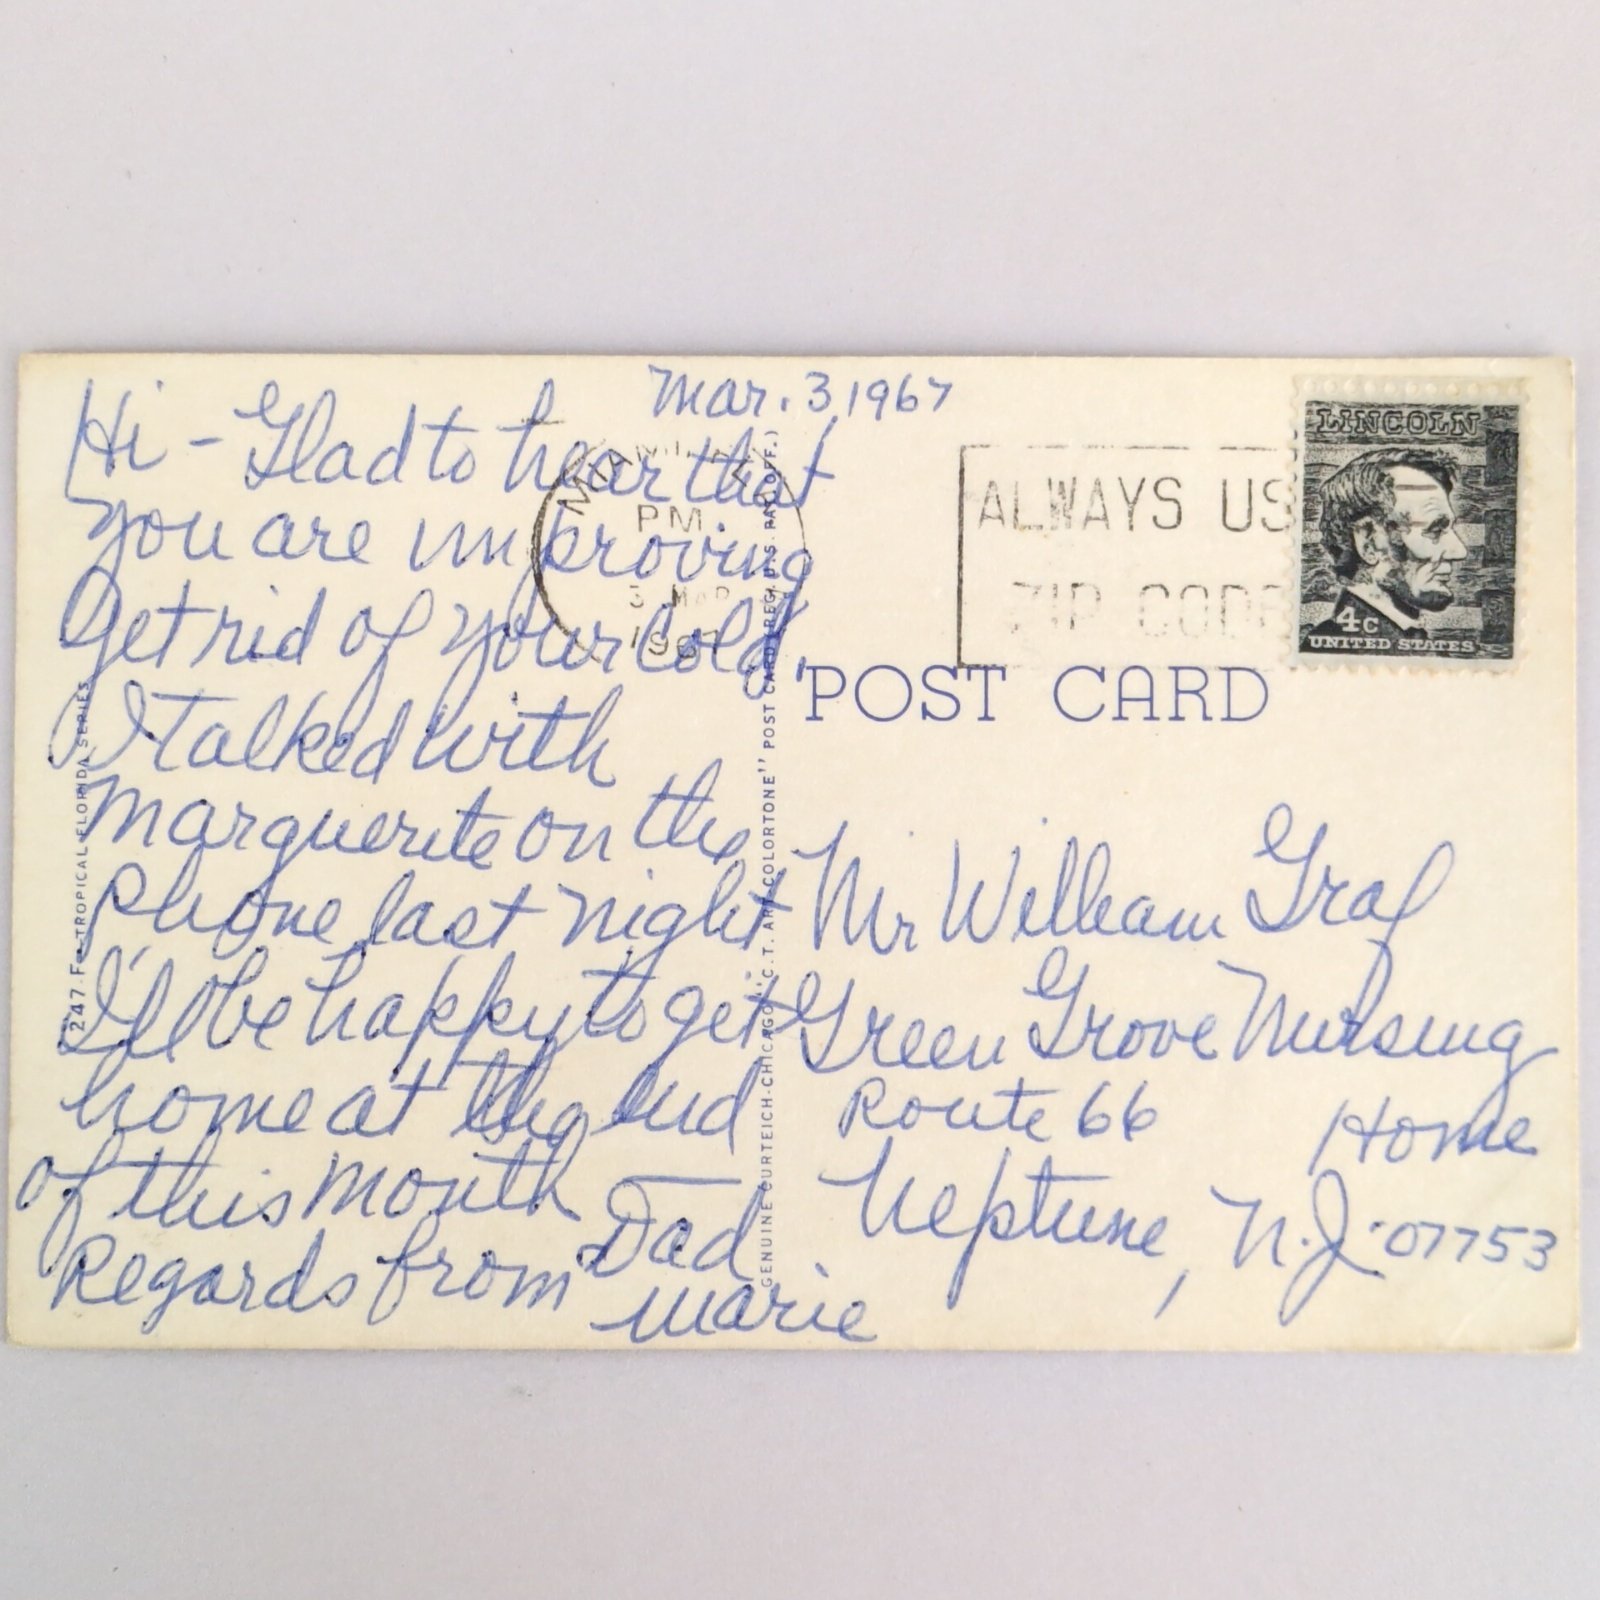 Mar. 3, 1967
Hi - Glad to hear that
you are improving
Get rid of your cold,
I talked with
Marguerite on the
phone last night
I'll be happy to get
home at the end
of this month
Regards from Dad
Marie
MIAMI, FLA.
PM
3 MAR
1967
ALWAYS US
ZIP CODE
LINCOLN
4c
UNITED STATES
POST CARD
Mr William Graf
Green Grove Nursing
Home
Route 66
Neptune, N.J. 07753
247-F-TROPICAL FLORIDA SERIES
GENUINE CURTEICH-CHICAGO "C.T. ART-COLORTONE" POST CARD (REG. U.S. PAT. OFF.)